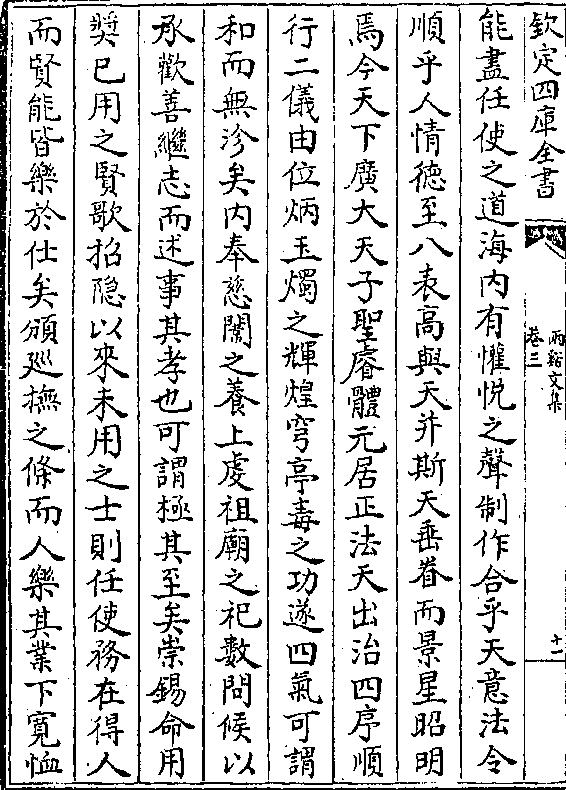 欽定四庫全書
兩谿文集
卷三
十一
能盡任使之道海内有懽悦之聲制作合乎天意法令
順乎人情德至八表高與天并斯天垂眷而景星昭明
焉今天下廣大天子聖睿體元居正法天出治四序順
行二儀由位炳玉燭之輝煌穹亭毒之功遂四氣可謂
和而無沴矣内奉慈闈之養上虔祖廟之祀數問候以
承歡善繼志而述事其孝也可謂極其至矣崇錫命用
奬已用之賢歌招隐以來未用之士則任使務在得人
而賢能皆樂於仕矣頒廵撫之條而人樂其業下寛恤